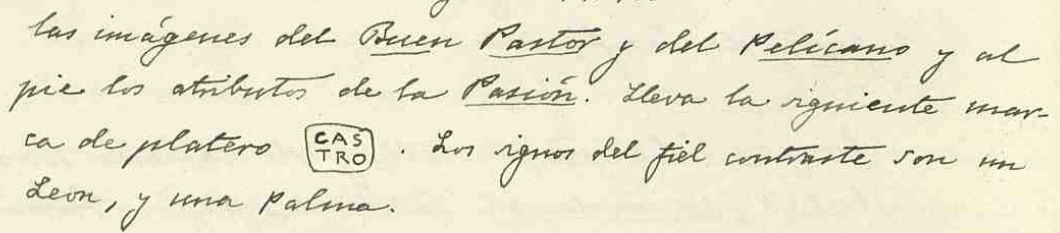 las imágenes del Buen Pastor y del Pelícano y al
pie los atributos de la Pasión. Lleva la siguiente mar-
ca de platero CAS
TRO . Los signos del fiel contraste son un
Leon, y una Palma.